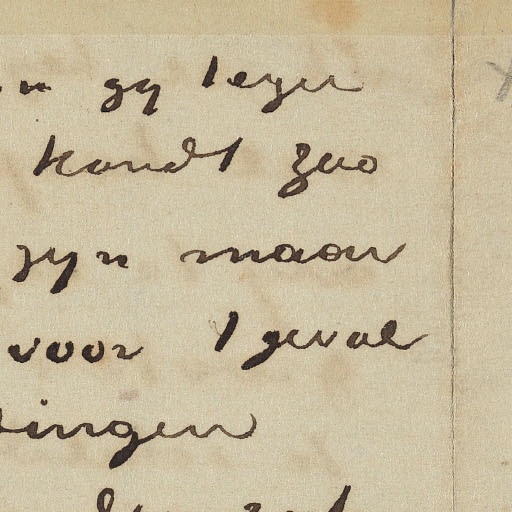 gy tegen
kondt zoo
zyn maar
voor 't geval
ingen